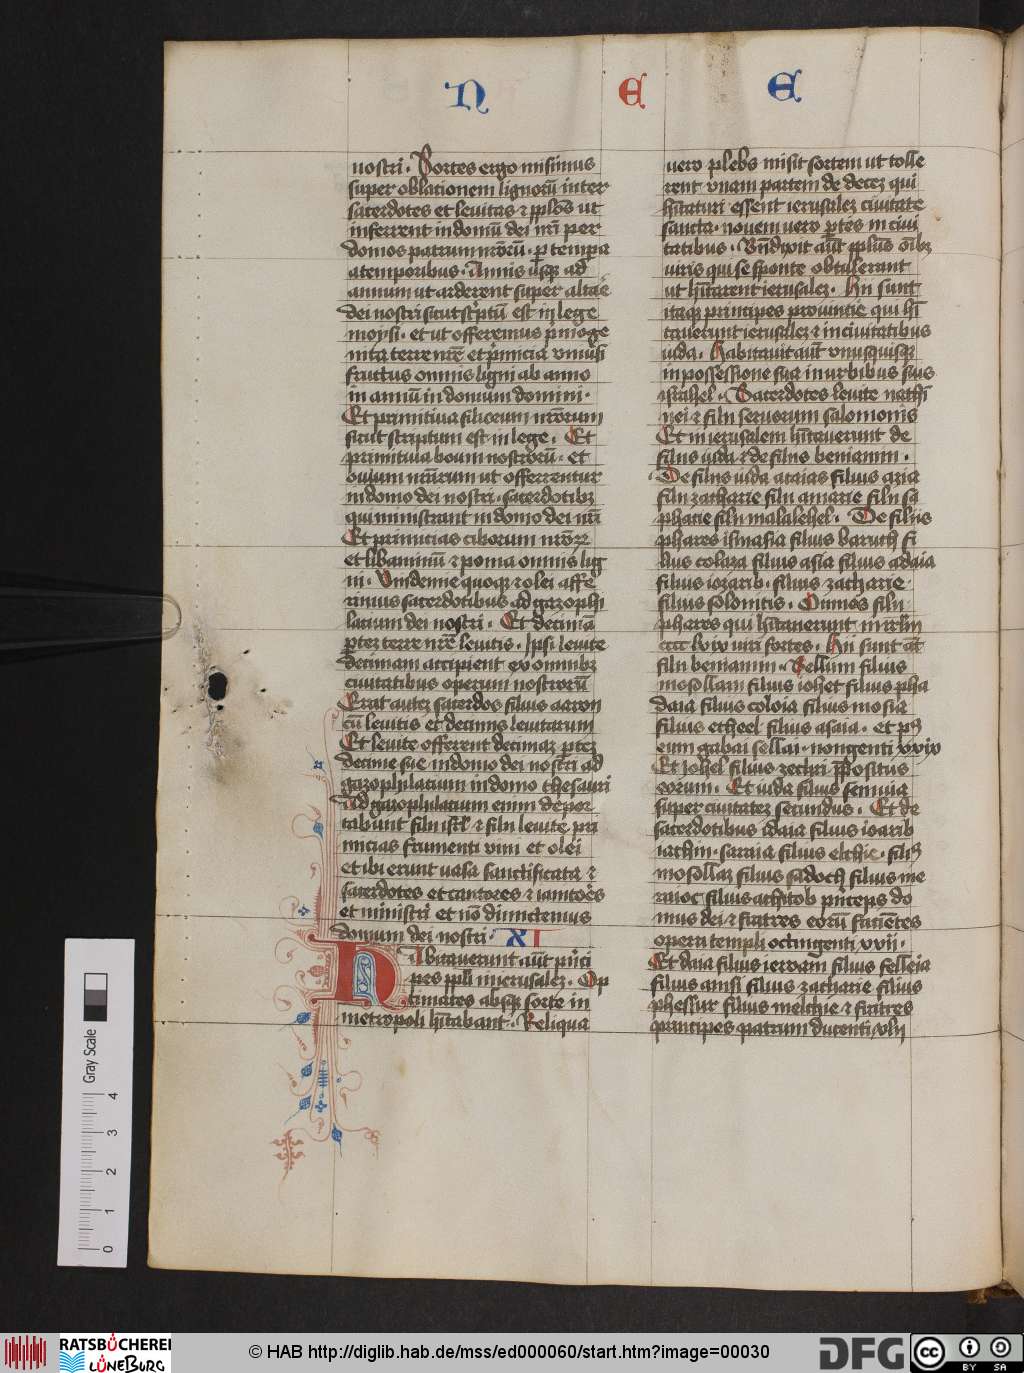 N E E
nostri. Sortes ergo misimus
super oblationem lignorū inter
sacerdotes et leuitas ⁊ pplōs ut
inferrent in domū dei nrī per
domos patrum nrōrū. ꝑ tempa
a temporibus. Annis usqꝫ ad
annum ut arderent super altare
dei nostri sicut sc͛ptū est in lege
moysi. et ut offeremus p͛moge
nita terre nrē et p͛micia vniu͛si
fructus omnis ligni ab anno
in annū in domum domini.
Et primitiua filiorum nrōrum
sicut scriptum est in lege. Et
primitiuia boum nostrorū. et
ouium nrārum ut offerrentur
in domo dei nostri. sacerdotibꝫ
qui ministrant in domo dei nrī
Et primicias ciborum nrōꝝ
et libaminū ⁊ poma omnis lig
ni. Vindemie quoqꝫ ⁊ olei affe
rimus sacerdotibus ad gazophi
lacium dei nostri. Et decimā
ꝑtez terre nrē leuitis. Ipsi leuite
decimam accipient ex omnibꝫ
ciuitatibus operum nostrorū
Erat autez sacerdos filius aaron
cū leuitis et decimis leuitarum
Et leuite offerent decimaz ꝑtez
decime sue in domo dei nostri ad
gazophilatium in domo thesauri
Ad gazophilatium enim depor
tabunt filii isrl̄ ⁊ filii leuite pri
micias frumenti vini et olei
et ibi erunt uasa sanctificata ⁊
sacerdotes et cantores ⁊ ianitores
et ministri et nō dimictemus
domum dei nostri. XI
Habitauerunt aūt p͛nci
pes ppl̄i in ierusalez. Op
timates absqꝫ sorte in
metropoli hītabant. Reliqua
uero plebs misit sortem ut tolle
rent vnam partem de decez qui
hītaturi essent ierusalez ciuitate
sancta. nouem uero ꝑtes in ciui
tatibus. Bn̄dixit aūt pplūs oībꝫ
uiris qui se sponte obtulerant
ut hītarent ierusalez. Hii sunt
itaqꝫ principes prouintie qui hī
tauerunt ierusalez ⁊ in ciuitatibus
iuda. Habitauit aūt vnusquisqꝫ
in possessione sua in urbibus suis
israhel. Sacerdotes leuite nathi
nei ⁊ filii seruorum salomonis
Et in ierusalem hītauerunt de
filiis iuda ⁊ de filiis beniamin.
De filiis iuda ataias filius azia
filii zacharie filii amarie filii sa
phatie filii malalehel. De filiis
phares ismasia filius baruch fi
lius colaza filius asia filius adaia
filius iozarib. filius zacharie
filius solonitis. Omnes filii
phares qui hītauerunt in irl̄m
cccc lxix uiri fortes. Hii sunt aūt
filii beniamin. Sellum filius
mosollam filius iohet filius pha
daia filius coloia filius mosia
filius etheel filius asaia. et pꝰ
eum gabai sellai. nongenti xxix
Et Johel filius zechri p̄positus
eorum. Et iuda filius sennua
super ciuitatez secundus. Et de
sacerdotibus idaia filius ioarib
iachin. saraia filius elchie. filiꝰ
mosollaz filius sadoch filius me
raioc filius achitob p͛nceps do
mus dei ⁊ fratres eorū faciētes
opera templi octingenti xxii.
Et daia filius ieroam filius felleia
filius amsi filius zacharie filius
phessur filius melchie ⁊ fratres
principes patrum ducenti xlii
Gray Scale
0 1 2 3 4
RATSBÜCHEREI
LÜNEBURG
© HAB http://diglib.hab.de/mss/ed000060/start.htm?image=00030
DFG
cc BY SA